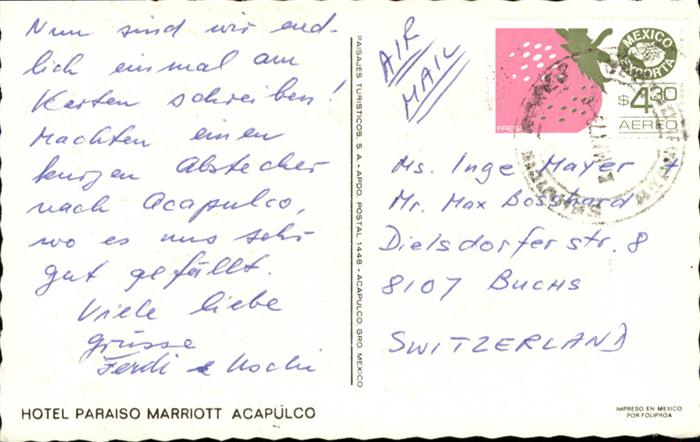 Nun sind wir end-
lich einmal am
Karten schreiben!
Machten einen
kurzen Abstecher
nach Acapulco,
wo es uns sehr
gut gefällt.
Viele liebe
grüsse
Ferdi & Uschi
HOTEL PARAISO MARRIOTT ACAPULCO
PAISAJES TURISTICOS, S. A. - APDO. POSTAL 1448 - ACAPULCO, GRO. MEXICO
AIR
MAIL
MEXICO
EXPORTA
$4.30
AEREO
FRESAS
Ms. Inge Mayer +
Mr. Max Bosshard
Dielsdorferstr. 8
8107 BUCHS
SWITZERLAND
IMPRESO EN MEXICO
POR FOLIPROA